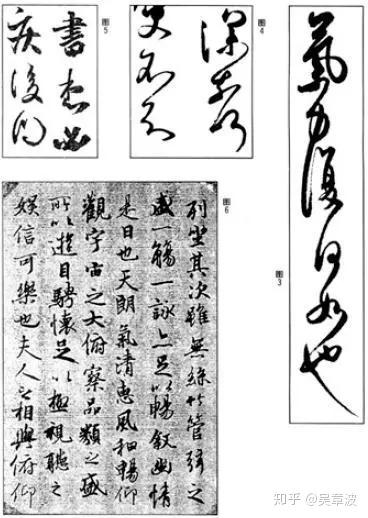 图5
图4
氣力復何如也
图3
图6
列坐其次雖無絲竹管弦之
盛一觴一詠亦足以暢敘幽情
是日也天朗氣清惠風和暢仰
觀宇宙之大俯察品類之盛
所以遊目騁懷足以極視聽之
娛信可樂也夫人之相與俯仰
知乎 @吴章波